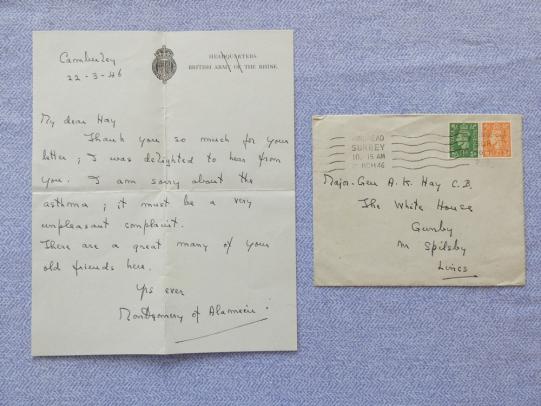 Camberley
22-3-46
HEADQUARTERS
BRITISH ARMY OF THE RHINE
My dear Hay
Thank you so much for your
letter; I was delighted to hear from
you. I am sorry about the
asthma; it must be a very
unpleasant complaint.
There are a great many of your
old friends here.
Yrs ever
Montgomery of Alamein
SURREY
10. 15 AM
MCH 46
Major-Gen A. K. Hay C.B.
The White House
Gunby
Nr Spilsby
Lincs